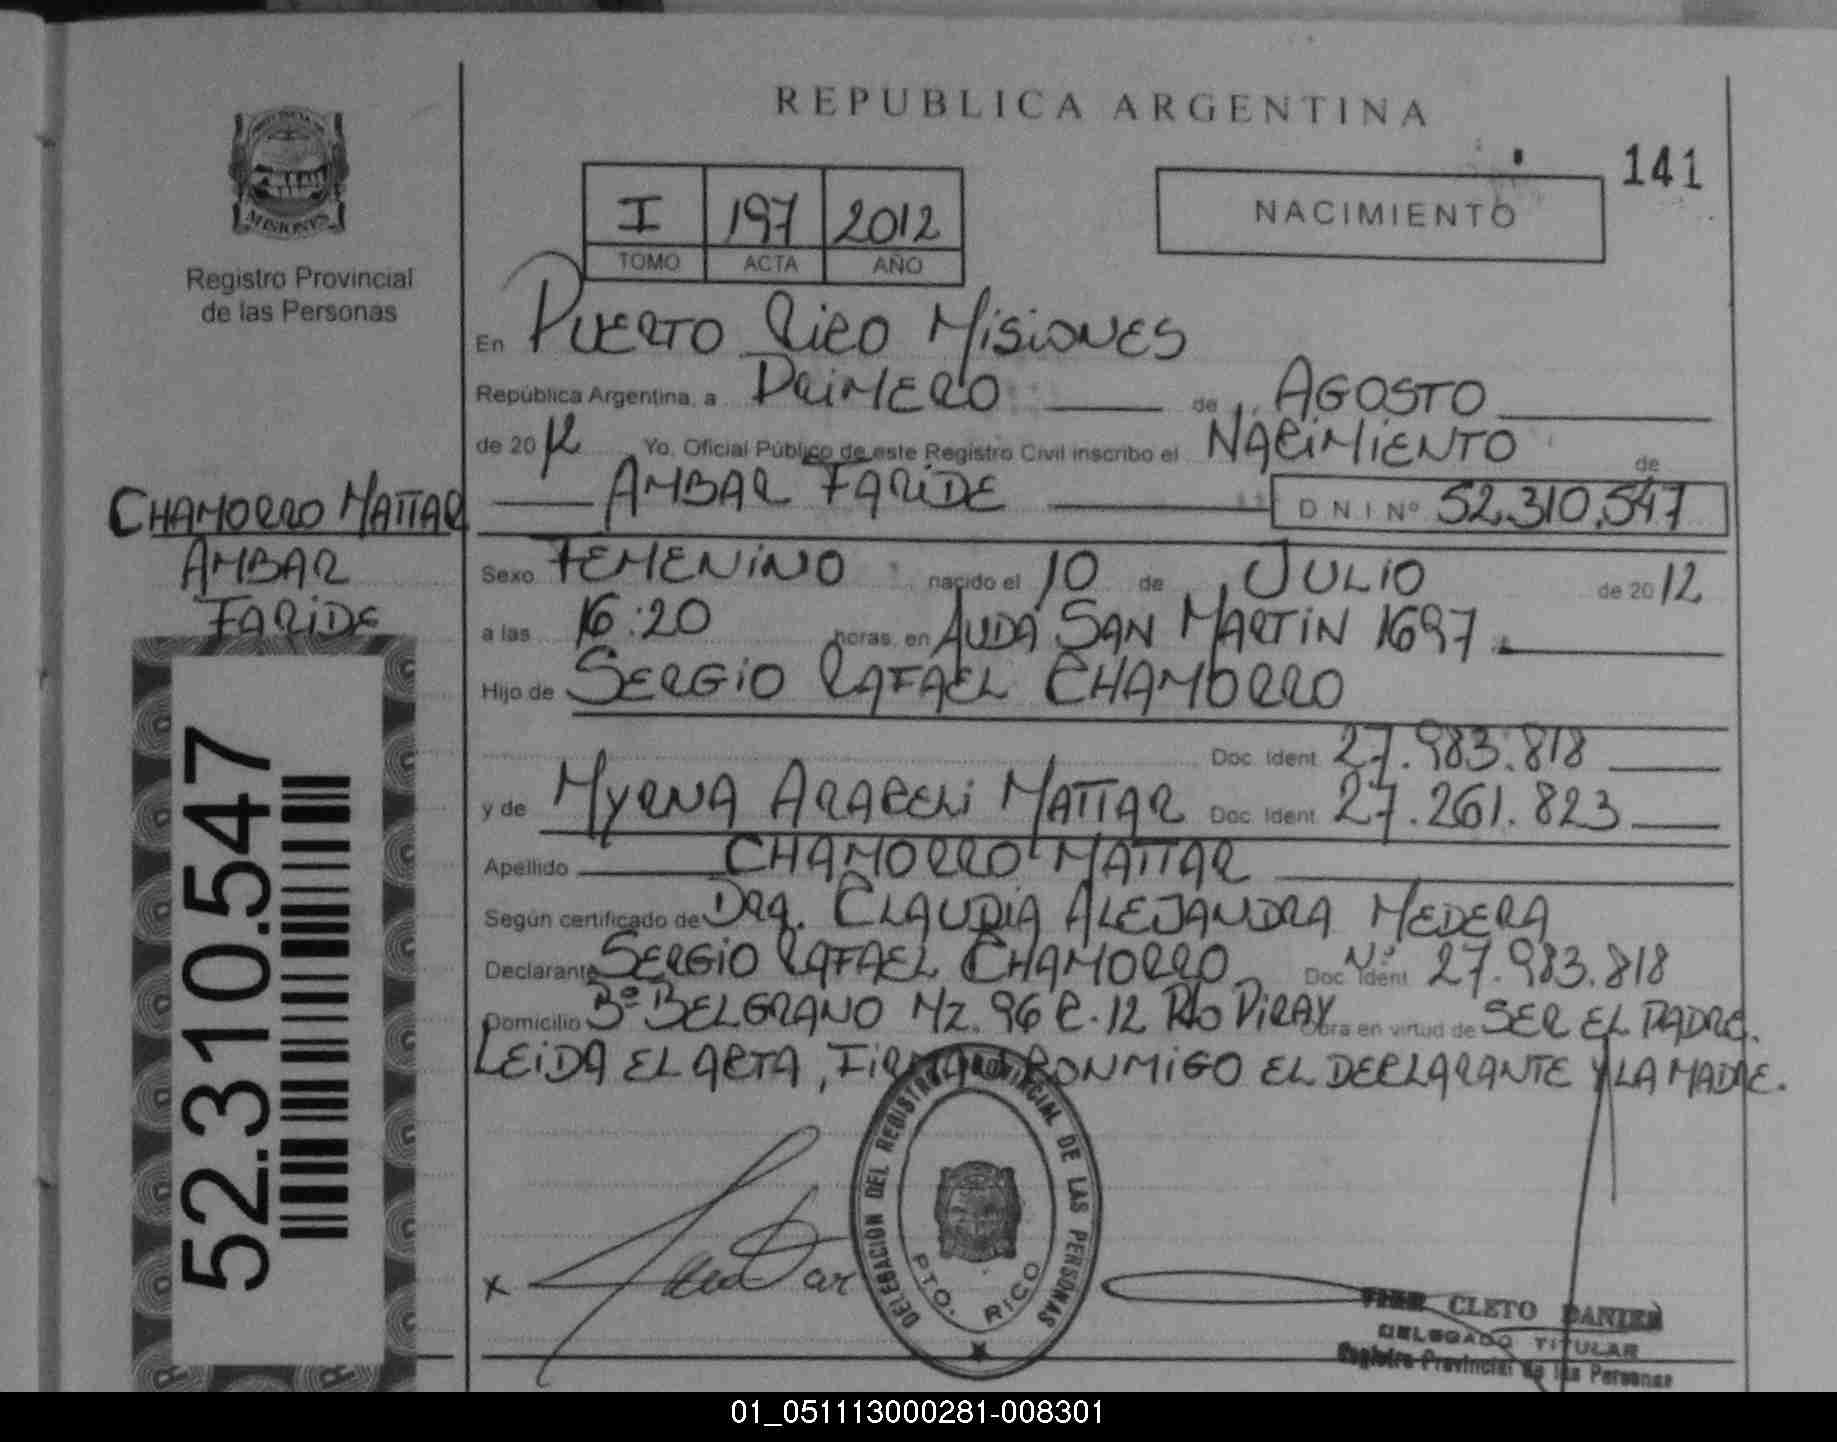 REPUBLICA ARGENTINA
141
NACIMIENTO
I 197 2012
TOMO ACTA AÑO
MISIONES
Registro Provincial
de las Personas
En PUERTO RICO MISIONES
República Argentina, a PRIMERO de AGOSTO
de 2012 Yo, Oficial Público de este Registro Civil inscribo el NACIMIENTO de
AMBAR FARIDE DNI Nº 52.310.547
CHAMORRO MATTAR
AMBAR
FARIDE
Sexo FEMENINO nacido el 10 de JULIO de 2012
a las 16:20 horas, en AVDA SAN MARTIN 1697
Hijo de SERGIO RAFAEL CHAMORRO
Doc. Ident. 27.983.818
y de MYRNA ARACELI MATTAR Doc. Ident. 27.261.823
Apellido CHAMORRO MATTAR
Según certificado de DRA. CLAUDIA ALEJANDRA MEDERA
Declarante SERGIO RAFAEL CHAMORRO Doc. Ident. Nº 27.983.818
Domicilio Bº BELGRANO MZ. 96 C.12 Pto PIRAY Obra en virtud de SER EL PADRE.
LEIDA EL ACTA, FIRMAN CONMIGO EL DECLARANTE Y LA MADRE.
52.310.547
DELEGACIÓN DEL REGISTRO PROVINCIAL DE LAS PERSONAS
PTO. RICO
x
CLETO DANIEL
DELEGADO TITULAR
Registro Provincial de las Personas
01_051113000281-008301